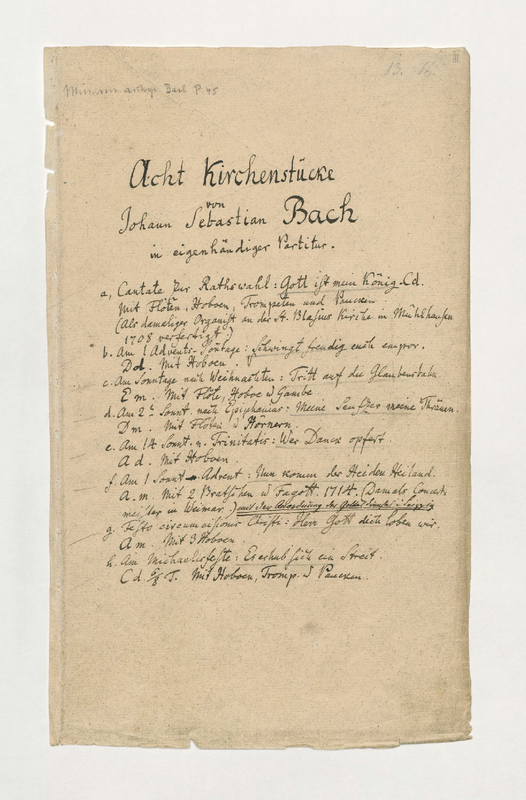 13.
P. 45
Acht Kirchenstücke
von
Johann Sebastian Bach
in eigenhändiger Partitur.
a, Cantate zur Rathswahl: Gott ist mein König. Cd.
Mit Flöten, Hoboen, Trompeten und Paucken
(Als damaliger Organist an der St. Blasius Kirche in Mühlhausen
1708 verfertigt)
b. Am 1 Advents-Sontage: Schwingt freudig euch empor.
Dd. Mit Hoboen
c. Am Sontage nach Weihnachten: Tritt auf die Glaubensbahn.
E m. Mit Flöte, Hoboe u Gambe
d. Am 2t Sonnt. nach Epiphanias: Meine Seufzer meine Thränen.
Dm. Mit Flöten u Hörnern
e. Am 14 Sonnt. n. Trinitatis: Wer Danck opfert.
A d. Mit Hoboen.
f. Am 1 Sonnt Advent: Nun komm der Heiden Heiland.
A. m. Mit 2 Bratschen u Fagott. 1714. (Damals Concert-
meister in Weimar.) und der Anordnung des Gottesdienstes in Leipzig
g. Festo circumcisionis Christi: Herr Gott dich loben wir.
Am. Mit 3 Hoboen
h. Am Michaelisfeste: Es erhub sich ein Streit.
Cd. Mit Hoboen, Tromp. u Paucken.